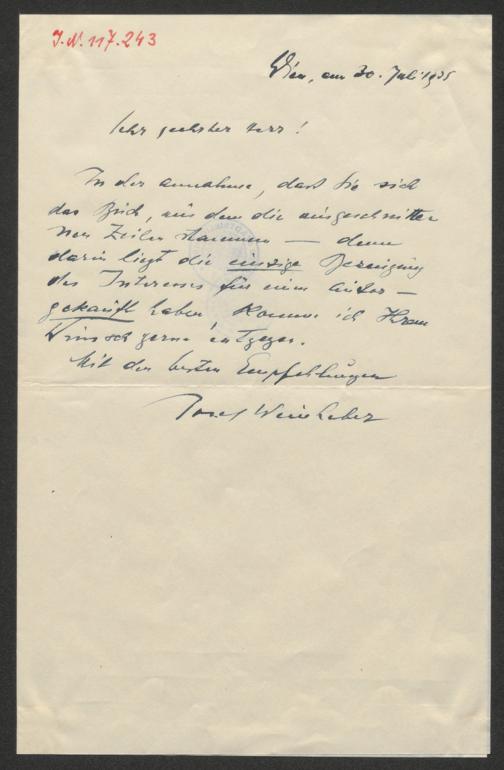 I.N. 117.243
Wien, am 30. Juli 1935
Sehr geehrter Herr!
In der Annahme, dass Sie sich
das Buch, aus dem die ausgeschnitte-
nen Zeilen stammen — denn
darin liegt die einzige Bezeugung
des Interesses für einen Autor —
gekauft haben, komme ich Ihrem
Wunsch gerne entgegen.
Mit den besten Empfehlungen
Josef Weinheber